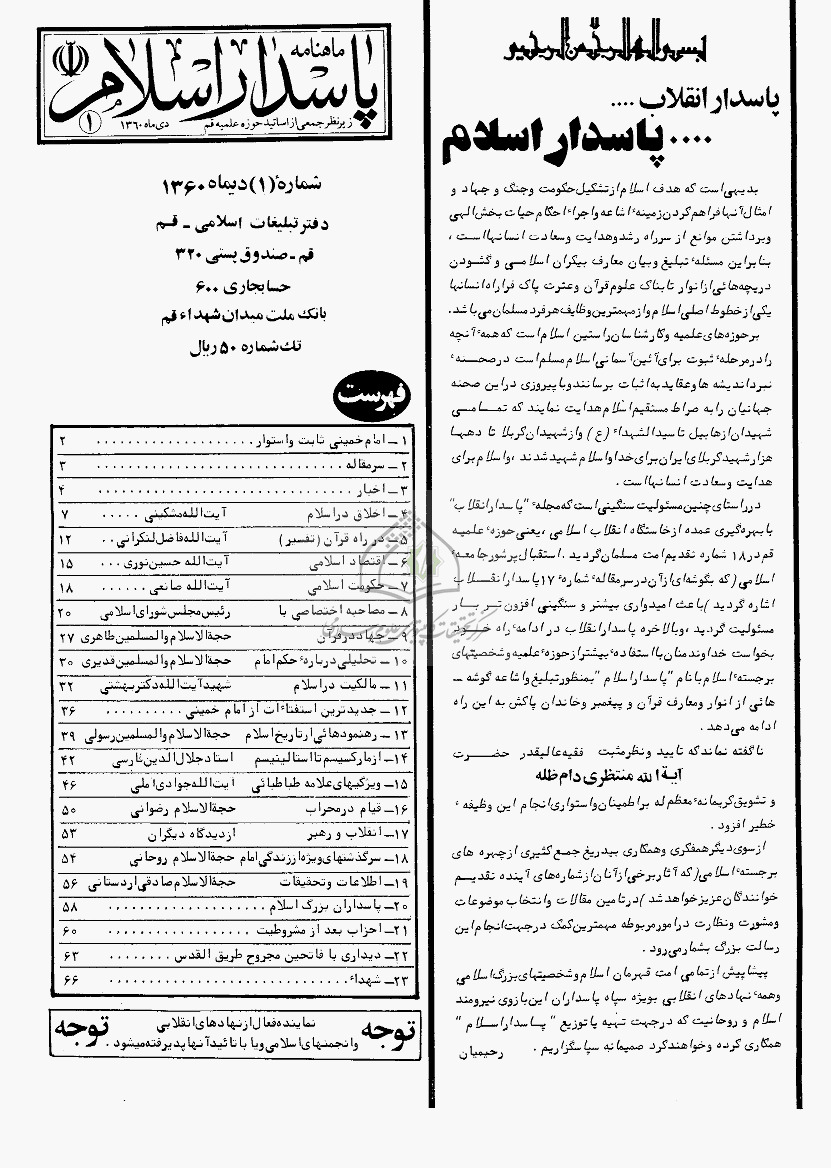 بسم الله الرحمن الرحیم
پاسدار انقلاب ....
.... پاسدار اسلام
بدیهی است که هدف اسلام از تشکیل حکومت و جنگ و جهاد و
امثال آنها فراهم کردن زمینهٔ اشاعه و اجراءٔ احکام حیات بخش الهی
و برداشتن موانع از سر راه رشد و هدایت و سعادت انسانها است ،
بنابراین مسئلهٔ تبلیغ و بیان معارف بیکران اسلامی و گشودن
دریچه‌هائی از انوار تابناک علوم قرآن و عترت پاک فرا راه انسانها
یکی از خطوط اصلی اسلام و از مهمترین وظایف هر فرد مسلمان می‌باشد.
بر حوزه‌های علمیه و کارشناسان راستین اسلام است که همهٔ آنچه
را در مرحلهٔ ثبوت برای آئین آسمانی اسلام مسلم است در صحنهٔ
نبرد اندیشه ها و عقاید به اثبات برسانند و با پیروزی در این صحنه
جهانیان را به صراط مستقیم اسلام هدایت نمایند که تمامی
شهیدان از هابیل تا سیدالشهداء (ع) و از شهیدان کربلا تا دهها
هزار شهید کربلای ایران برای خدا و اسلام شهید شدند ، و اسلام برای
هدایت و سعادت انسانها است .
در راستای چنین مسئولیت سنگینی است که مجلهٔ "پاسدار انقلاب"
با بهره‌گیری عمده از خاستگاه انقلاب اسلامی ، یعنی حوزهٔ علمیه
قم در ۱۸ شماره تقدیم امت مسلمان گردید . استقبال پرشور جامعهٔ
اسلامی (که بگوشه‌ای از آن در سرمقالهٔ شمارهٔ ۱۷ پاسدار انقلاب
اشاره گردید ) باعث امیدواری بیشتر و سنگینی افزون تر بار
مسئولیت گردید ، و بالاخره پاسدار انقلاب در ادامهٔ راه خود
بخواست خداوند منان با استفادهٔ بیشتر از حوزهٔ علمیه و شخصیتهای
برجستهٔ اسلام با نام "پاسدار اسلام" بمنظور تبلیغ و اشاعه گوشه ــ
هائی از انوار و معارف قرآن و پیغمبر و خاندان پاکش به این راه
ادامه می‌دهد .
ناگفته نماند که تایید و نظر مثبت فقیه عالیقدر حضرت
آیة الله منتظری دام ظله
و تشویق کریمانهٔ معظم له بر اطمینان و استواری انجام این وظیفهٔ ،
خطیر افزود .
از سوی دیگر همفکری و همکاری بیدریغ جمع کثیری از چهره های
برجستهٔ اسلامی (که آثار برخی از آنان از شماره‌های آینده تقدیم
خوانندگان عزیز خواهد شد ) در تامین مقالات و انتخاب موضوعات
و مشورت و نظارت در امور مربوطه مهمترین کمک در جهت انجام این
رسالت بزرگ بشمار می‌رود .
پیشاپیش از تمامی امت قهرمان اسلام و شخصیتهای بزرگ اسلامی
و همهٔ نهادهای انقلابی بویژه سپاه پاسداران این بازوی نیرومند
اسلام و روحانیت که در جهت تهیه یا توزیع "پاسدار اسلام"
همکاری کرده و خواهند کرد صمیمانه سپاسگزاریم . رحیمیان
ماهنامه
پاسدار اسلام
زیر نظر جمعی از اساتید حوزه علمیه قم دی ماه ۱۳۶۰ ۱
شمارهٔ (۱) دیماه ۱۳۶۰
دفتر تبلیغات اسلامی ـ قم
قم ـ صندوق پستی ۳۲۰
حساب جاری ۶۰۰
بانک ملت میدان شهداء قم
تک شماره ۵۰ ریال
فهرست
۱ ــ امام خمینی ثابت و استوار .................... ۲
۲ ــ سرمقاله .............................. ۳
۳ ــ اخبار .............................. ۴
۴ ــ اخلاق در اسلام آیت‌الله مشکینی ..... ۷
۵ ــ در راه قرآن (تفسیر) آیت‌الله فاضل لنکرانی .. ۱۲
۶ ــ اقتصاد اسلامی آیت‌الله حسین نوری ... ۱۵
۷ ــ حکومت اسلامی آیت‌الله صانعی ...... ۱۸
۸ ــ مصاحبه اختصاصی با رئیس مجلس شورای اسلامی ۲۰
۹ ــ جهاد در قرآن حجةالاسلام والمسلمین طاهری ۲۷
۱۰ ــ تحلیلی دربارهٔ حکم امام حجةالاسلام والمسلمین قدیری ۳۰
۱۱ ــ مالکیت در اسلام شهید آیت‌الله دکتر بهشتی ۳۲
۱۲ ــ جدیدترین استفتاءات از امام خمینی .......... ۳۶
۱۳ ــ رهنمودهائی از تاریخ اسلام حجةالاسلام والمسلمین رسولی ۳۹
۱۴ ــ از مارکسیسم تا استالینیسم استاد جلال الدین فارسی ۴۲
۱۵ ــ ویژگیهای علامه طباطبائی آیت‌الله جوادی آملی ۴۶
۱۶ ــ قیام در محراب حجةالاسلام رضوانی ۵۰
۱۷ ــ انقلاب و رهبر از دیدگاه دیگران ۵۳
۱۸ ــ سرگذشتهای ویژه از زندگی امام حجةالاسلام روحانی ۵۴
۱۹ ــ اطلاعات و تحقیقات حجةالاسلام صادقی اردستانی ۵۶
۲۰ ــ پاسداران بزرگ اسلام .................... ۵۸
۲۱ ــ احزاب بعد از مشروطیت ................ ۶۰
۲۲ ــ دیداری با فاتحین مجروح طریق القدس ........ ۶۳
۲۳ ــ شهداء .............................. ۶۶
توجه نماینده فعال از نهادهای انقلابی توجه
و انجمنهای اسلامی و یا با تائید آنها پذیرفته میشود .